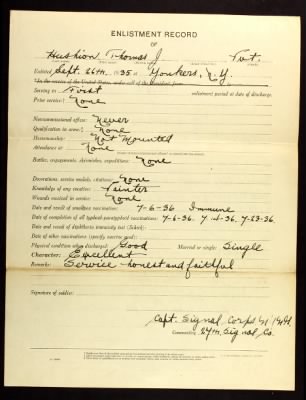 ENLISTMENT RECORD
OF
Hushion Thomas J. Pvt.
Enlisted Sept. 26th, 1935 at Yonkers, N.Y.
Serving in First enlistment period at date of discharge.
Prior service: None
Noncommissioned officer: Never
Qualification in arms: None
Horsemanship: Not Mounted
Attendance at None
Battles, engagements, skirmishes, expeditions: None
Decorations, service medals, citations: None
Knowledge of any vocation: Painter
Wounds received in service: None
Date and result of smallpox vaccination: 7-6-36 Immune
Date of completion of all typhoid-paratyphoid vaccinations: 7-6-36. 7-14-36. 7-23-36.
Date and result of diphtheria immunity test (Schick):
Date of other vaccinations (specify vaccine used):
Physical condition when discharged: Good Married or single: Single
Character: Excellent
Remarks: Service honest and faithful
Signature of soldier:
Capt. Signal Corps
Commanding 27th Signal Co.